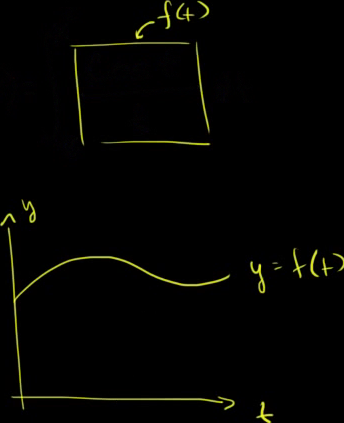 f(t)
y
y = f(t)
t